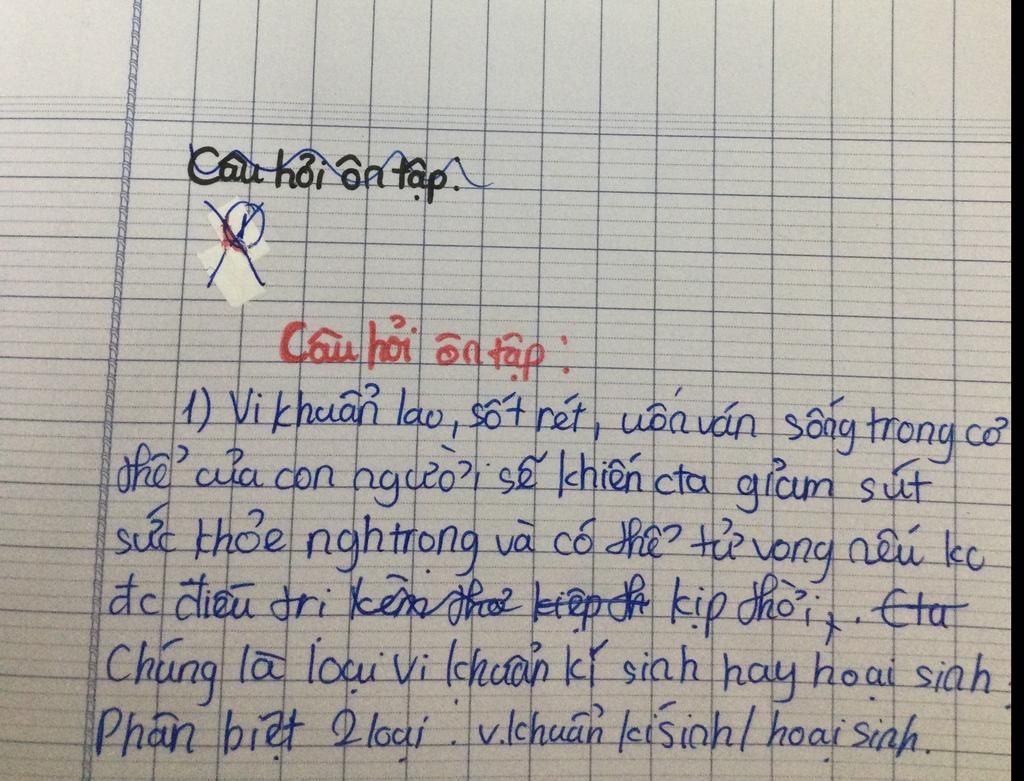 Câu hỏi ôn tập:
1
Câu hỏi ôn tập:
1) Vi khuẩn lao, sốt rét, uốn ván sống trong cơ
thể của con người sẽ khiến cta giảm sút
sức khỏe nghtrọng và có thể tử vong nếu kc
đc điều tri kịp thời. cta
Chúng là loại vi khuẩn kí sinh hay hoại sinh.
Phân biệt 2 loại. v.khuẩn kí sinh/ hoại sinh.